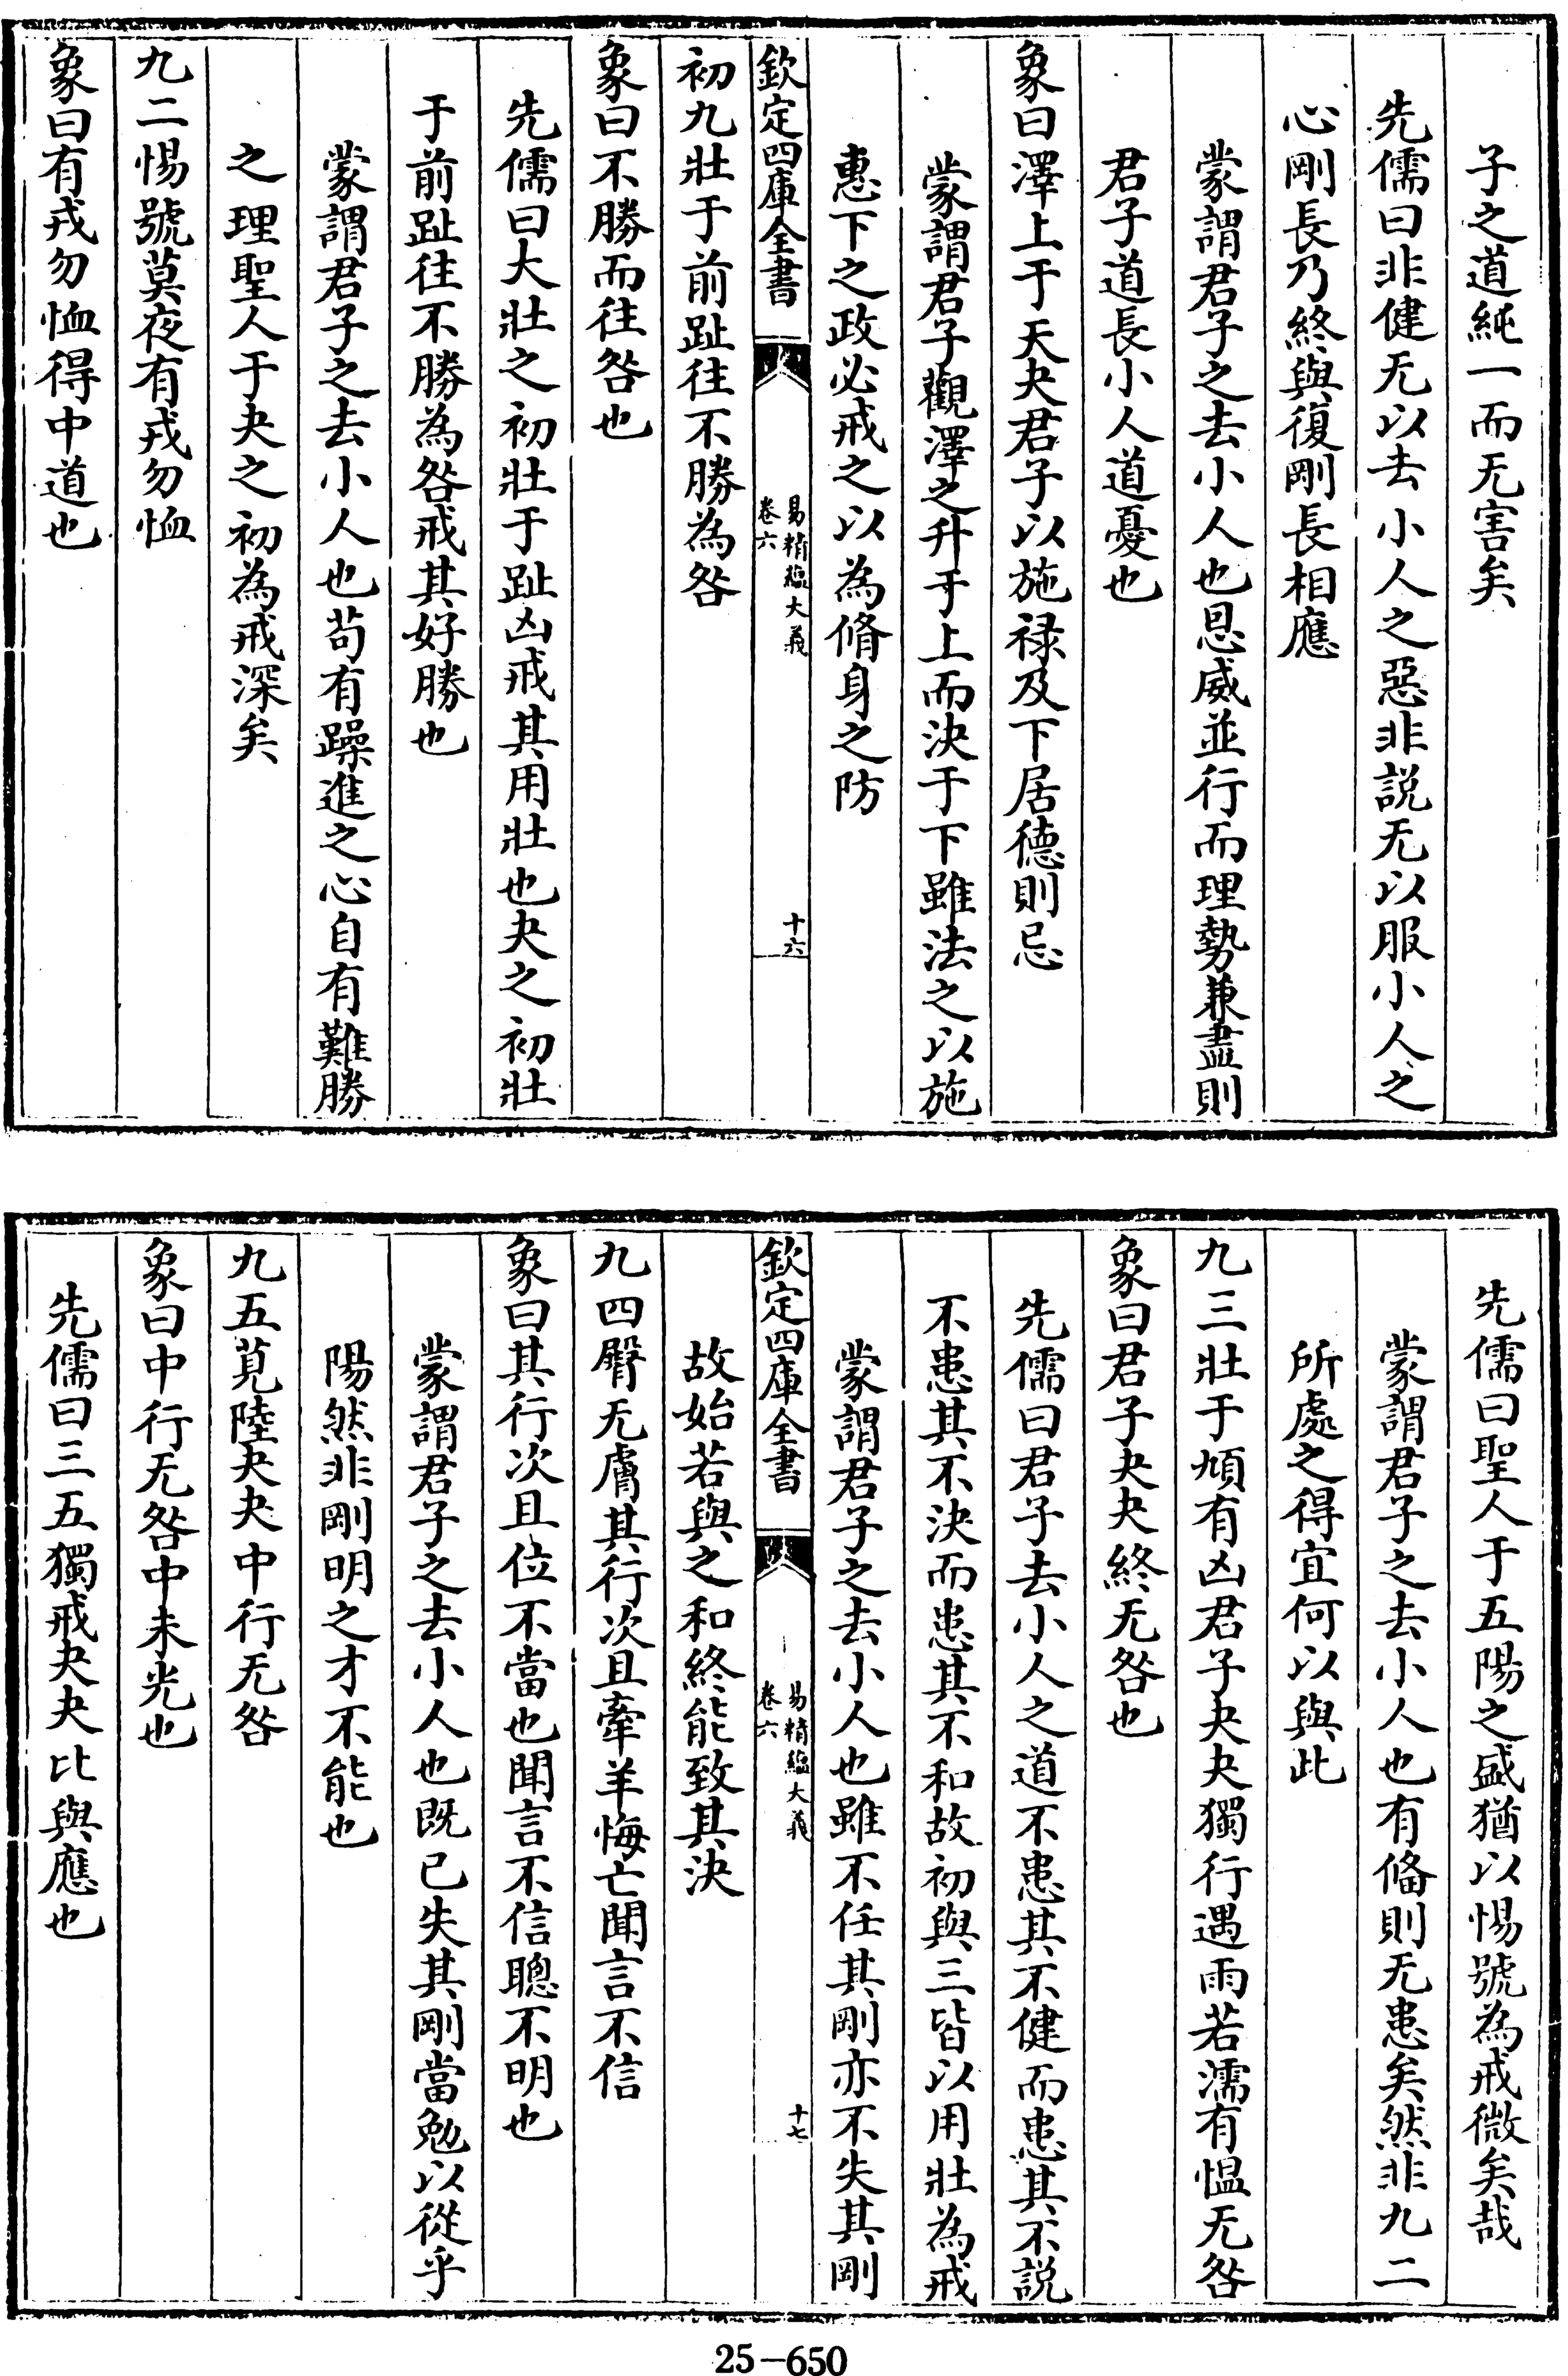 子之道純一而无害矣
先儒曰非健无以去小人之惡非説无以服小人之
心剛長乃終與復剛長相應
蒙謂君子之去小人也恩威並行而理勢兼盡則
君子道長小人道憂也
象曰澤上于天夬君子以施禄及下居德則忌
蒙謂君子觀澤之升于上而決于下雖法之以施
惠下之政必戒之以為脩身之防
欽定四庫全書
易精蘊大義
卷六
十六
初九壯于前趾往不勝為咎
象曰不勝而往咎也
先儒曰大壯之初壯于趾凶戒其用壯也夬之初壯
于前趾往不勝為咎戒其好勝也
蒙謂君子之去小人也苟有躁進之心自有難勝
之理聖人于夬之初為戒深矣
九二惕號莫夜有戎勿恤
象曰有戎勿恤得中道也
先儒曰聖人于五陽之盛猶以惕號為戒微矣哉
蒙謂君子之去小人也有俻則无患矣然非九二
所處之得宜何以與此
九三壯于頄有凶君子夬夬獨行遇雨若濡有愠无咎
象曰君子夬夬終无咎也
先儒曰君子去小人之道不患其不健而患其不説
不患其不決而患其不和故初與三皆以用壯為戒
蒙謂君子之去小人也雖不任其剛亦不失其剛
欽定四庫全書
易精蘊大義
卷六
十七
故始若與之和終能致其決
九四臀无膚其行次且牽羊悔亡聞言不信
象曰其行次且位不當也聞言不信聰不明也
蒙謂君子之去小人也既已失其剛當勉以從乎
陽然非剛明之才不能也
九五莧陸夬夬中行无咎
象曰中行无咎中未光也
先儒曰三五獨戒夬夬比與應也
25-650